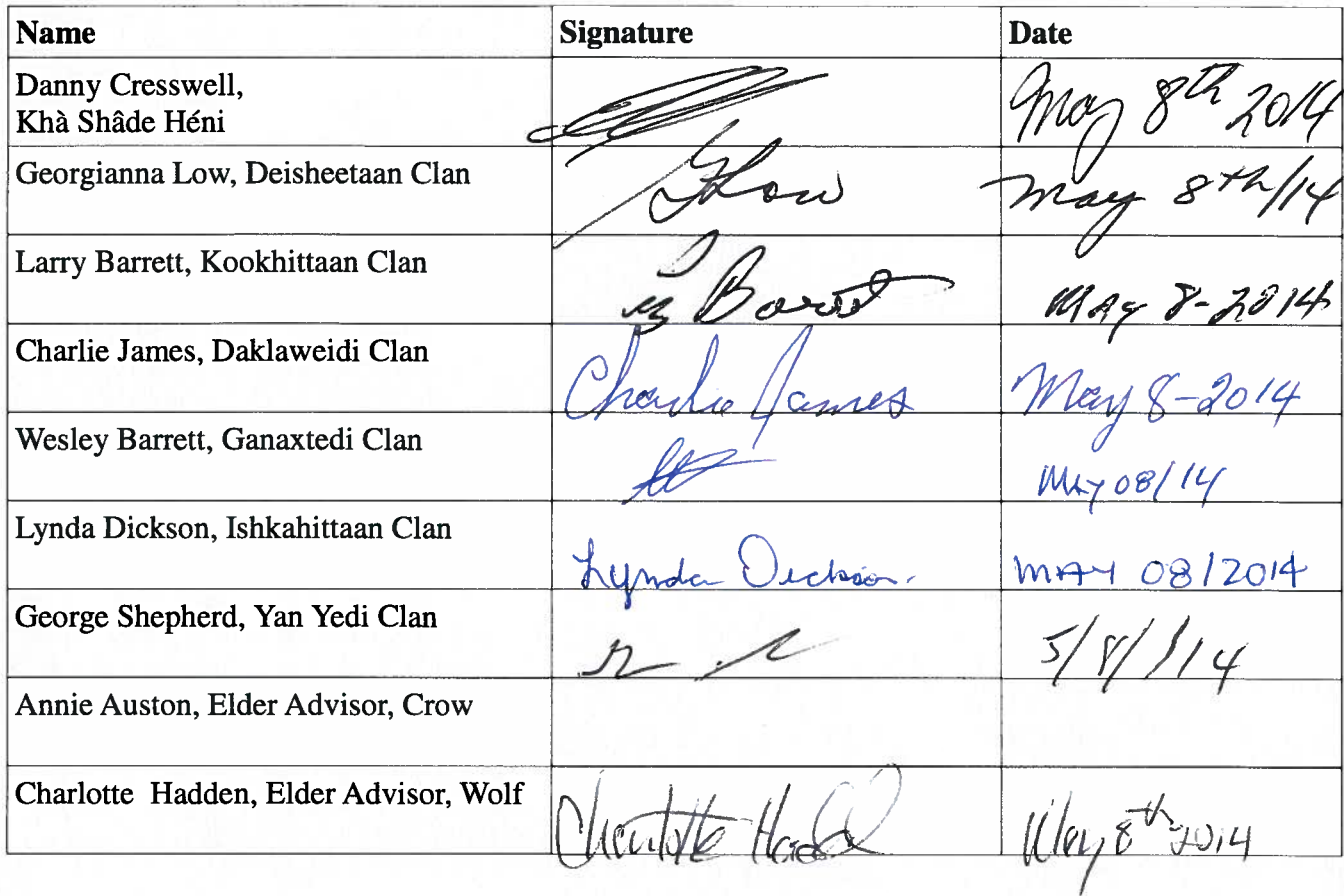 Name Signature Date
Danny Cresswell,
Khà Shâde Héni May 8th 2014
Georgianna Low, Deisheetaan Clan GLow May 8th/14
Larry Barrett, Kookhittaan Clan May 8-2014
Charlie James, Daklaweidi Clan Charlie James May 8-2014
Wesley Barrett, Ganaxtedi Clan May 08/14
Lynda Dickson, Ishkahittaan Clan Lynda Dickson. MAY 08/2014
George Shepherd, Yan Yedi Clan 5/8/14
Annie Auston, Elder Advisor, Crow
Charlotte Hadden, Elder Advisor, Wolf Charlotte May 8th 2014